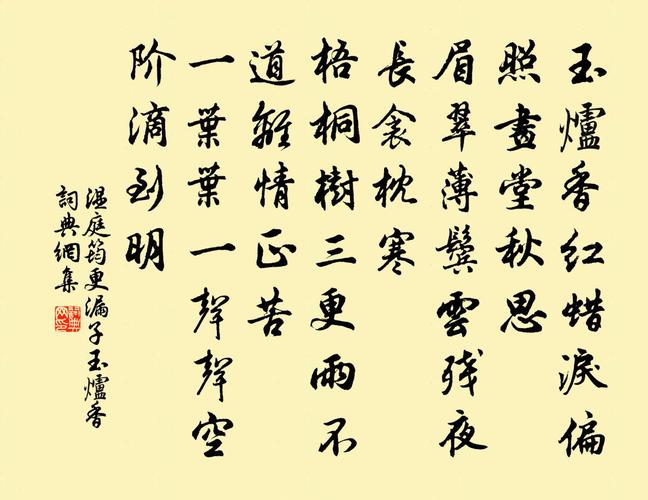 玉爐香红蜡淚偏
照畫堂秋思
眉翠薄鬢雲残夜
長衾枕寒
梧桐樹三更雨不
道離情正苦
一葉葉一聲聲空
阶滴到明
温庭筠更漏子玉爐香
詞典網集